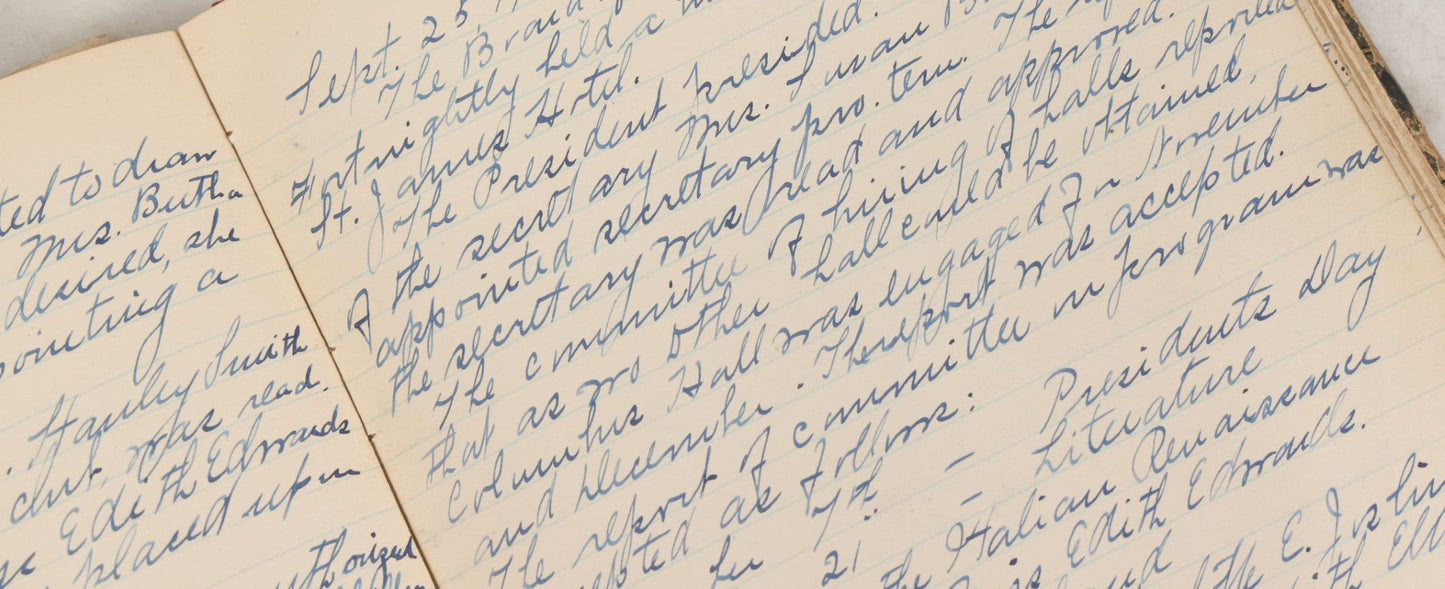 ted to draw
Mrs. Bertha
desired, she
pointing a
Stanley Smith
was read.
Edith Edwards
placed upon
Sept. 25,
The
Fortnightly held a
St. James Hotel.
The President presided.
of the secretary Mrs. Susan
appointed secretary pro. tem. The
the secretary was read and approved.
The committee of hiring of halls reported
that as no other hall could be obtained,
Columbus Hall was engaged for November
and December. The report was accepted.
The report of committee on program was
as follows:
7th – Presidents Day
21 – Literature
the Italian Renaissance
Edith Edwards.
E. Joslin